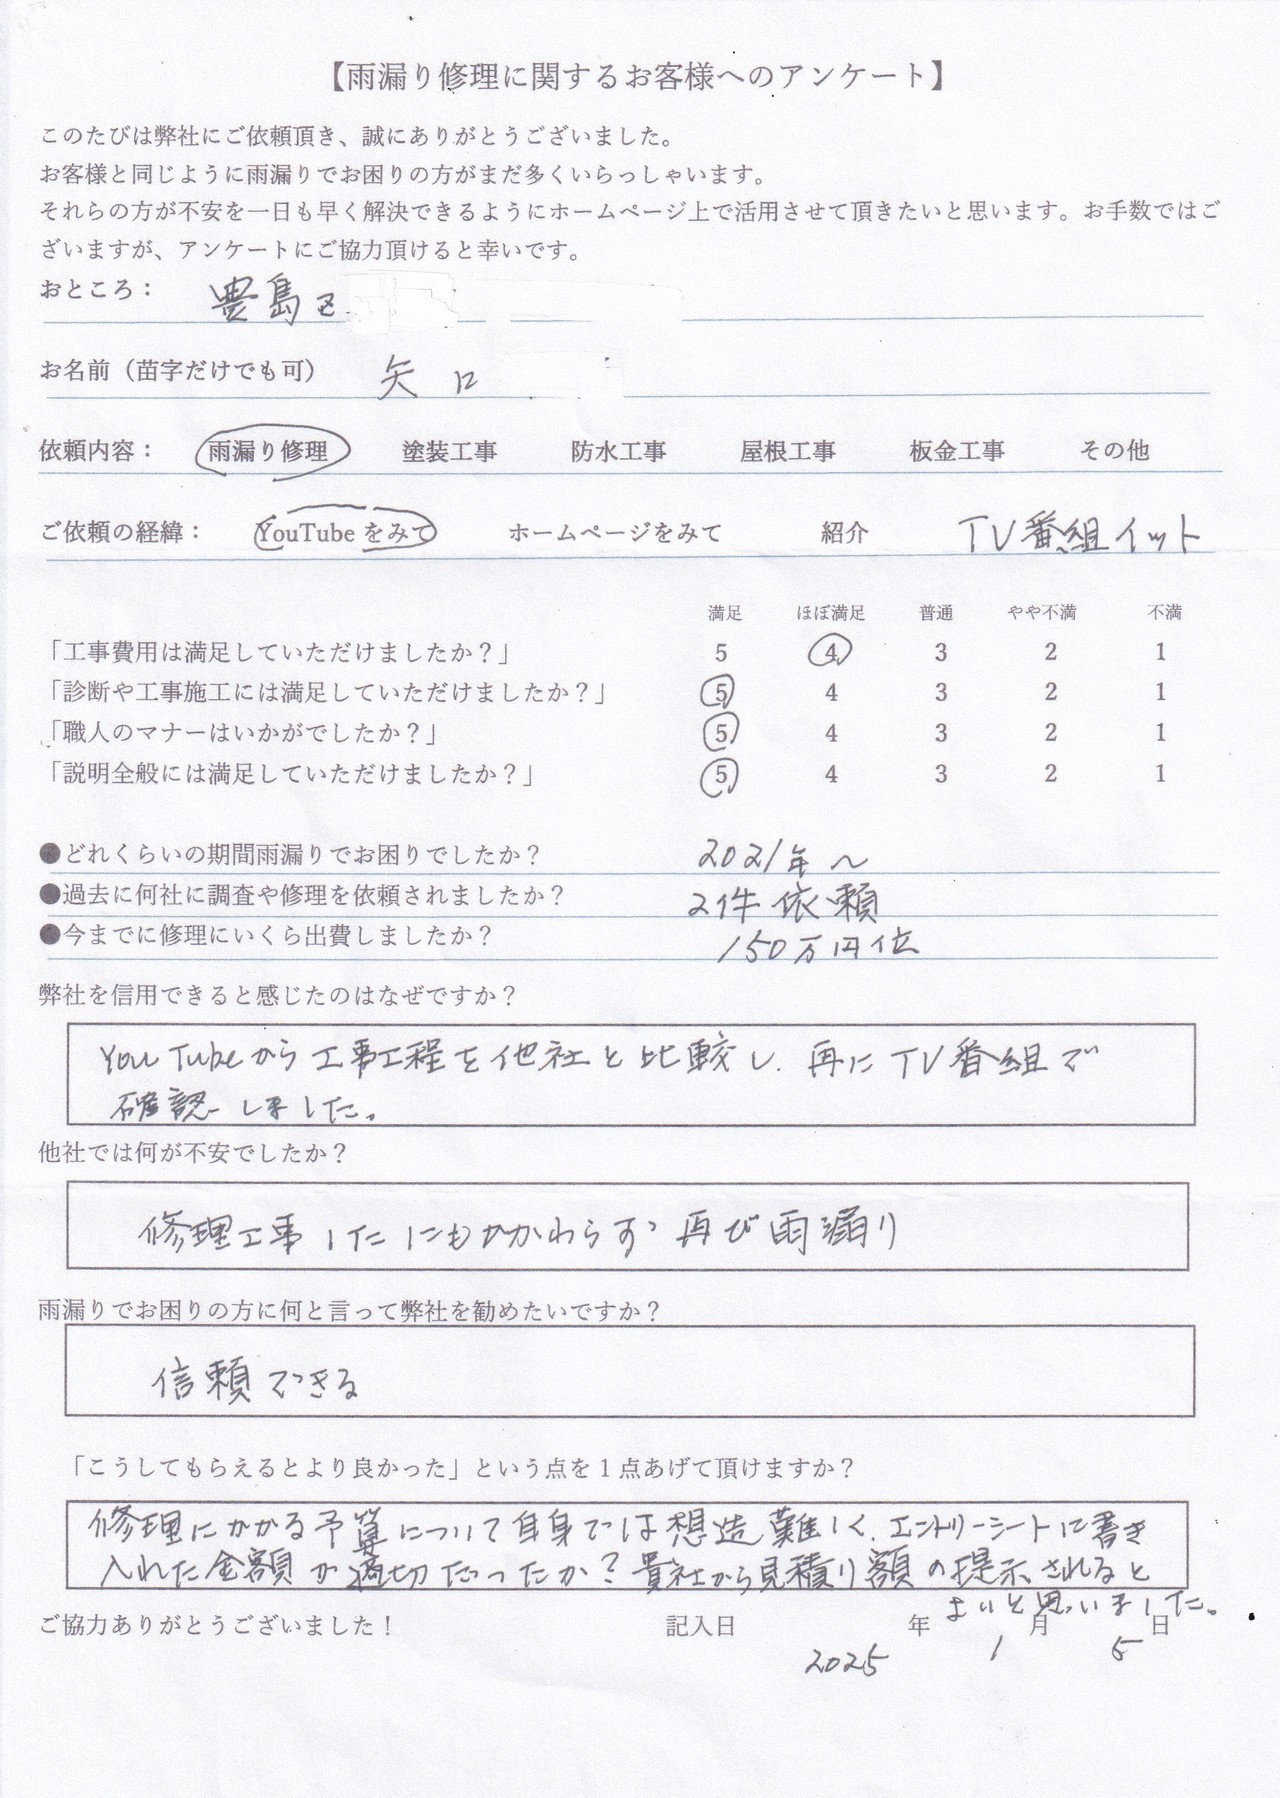 【雨漏り修理に関するお客様へのアンケート】
このたびは弊社にご依頼頂き、誠にありがとうございました。
お客様と同じように雨漏りでお困りの方がまだ多くいらっしゃいます。
それらの方が不安を一日も早く解決できるようにホームページ上で活用させて頂きたいと思います。お手数ではご
ざいますが、アンケートにご協力頂けると幸いです。
おところ： 豊島区
お名前（苗字だけでも可） 矢口
依頼内容： 雨漏り修理 塗装工事 防水工事 屋根工事 板金工事 その他
ご依頼の経緯： YouTubeをみて ホームページをみて 紹介 TV番組イット
満足 ほぼ満足 普通 やや不満 不満
「工事費用は満足していただけましたか？」 5 4 3 2 1
「診断や工事施工には満足していただけましたか？」 5 4 3 2 1
「職人のマナーはいかがでしたか？」 5 4 3 2 1
「説明全般には満足していただけましたか？」 5 4 3 2 1
●どれくらいの期間雨漏りでお困りでしたか？ 2021年～
●過去に何社に調査や修理を依頼されましたか？ 2件依頼
●今までに修理にいくら出費しましたか？ 150万円位
弊社を信用できると感じたのはなぜですか？
YouTubeから工事工程を他社と比較し、再にTV番組で
確認しました。
他社では何が不安でしたか？
修理工事したにもかかわらず再び雨漏り
雨漏りでお困りの方に何と言って弊社を勧めたいですか？
信頼できる
「こうしてもらえるとより良かった」という点を１点あげて頂けますか？
修理にかかる予算について自身では想造難しく、エントリーシートに書き
入れた金額が適切だったか？貴社から見積り額の提示されると
よいと思いました。
ご協力ありがとうございました！ 記入日 2025年 1月 5日